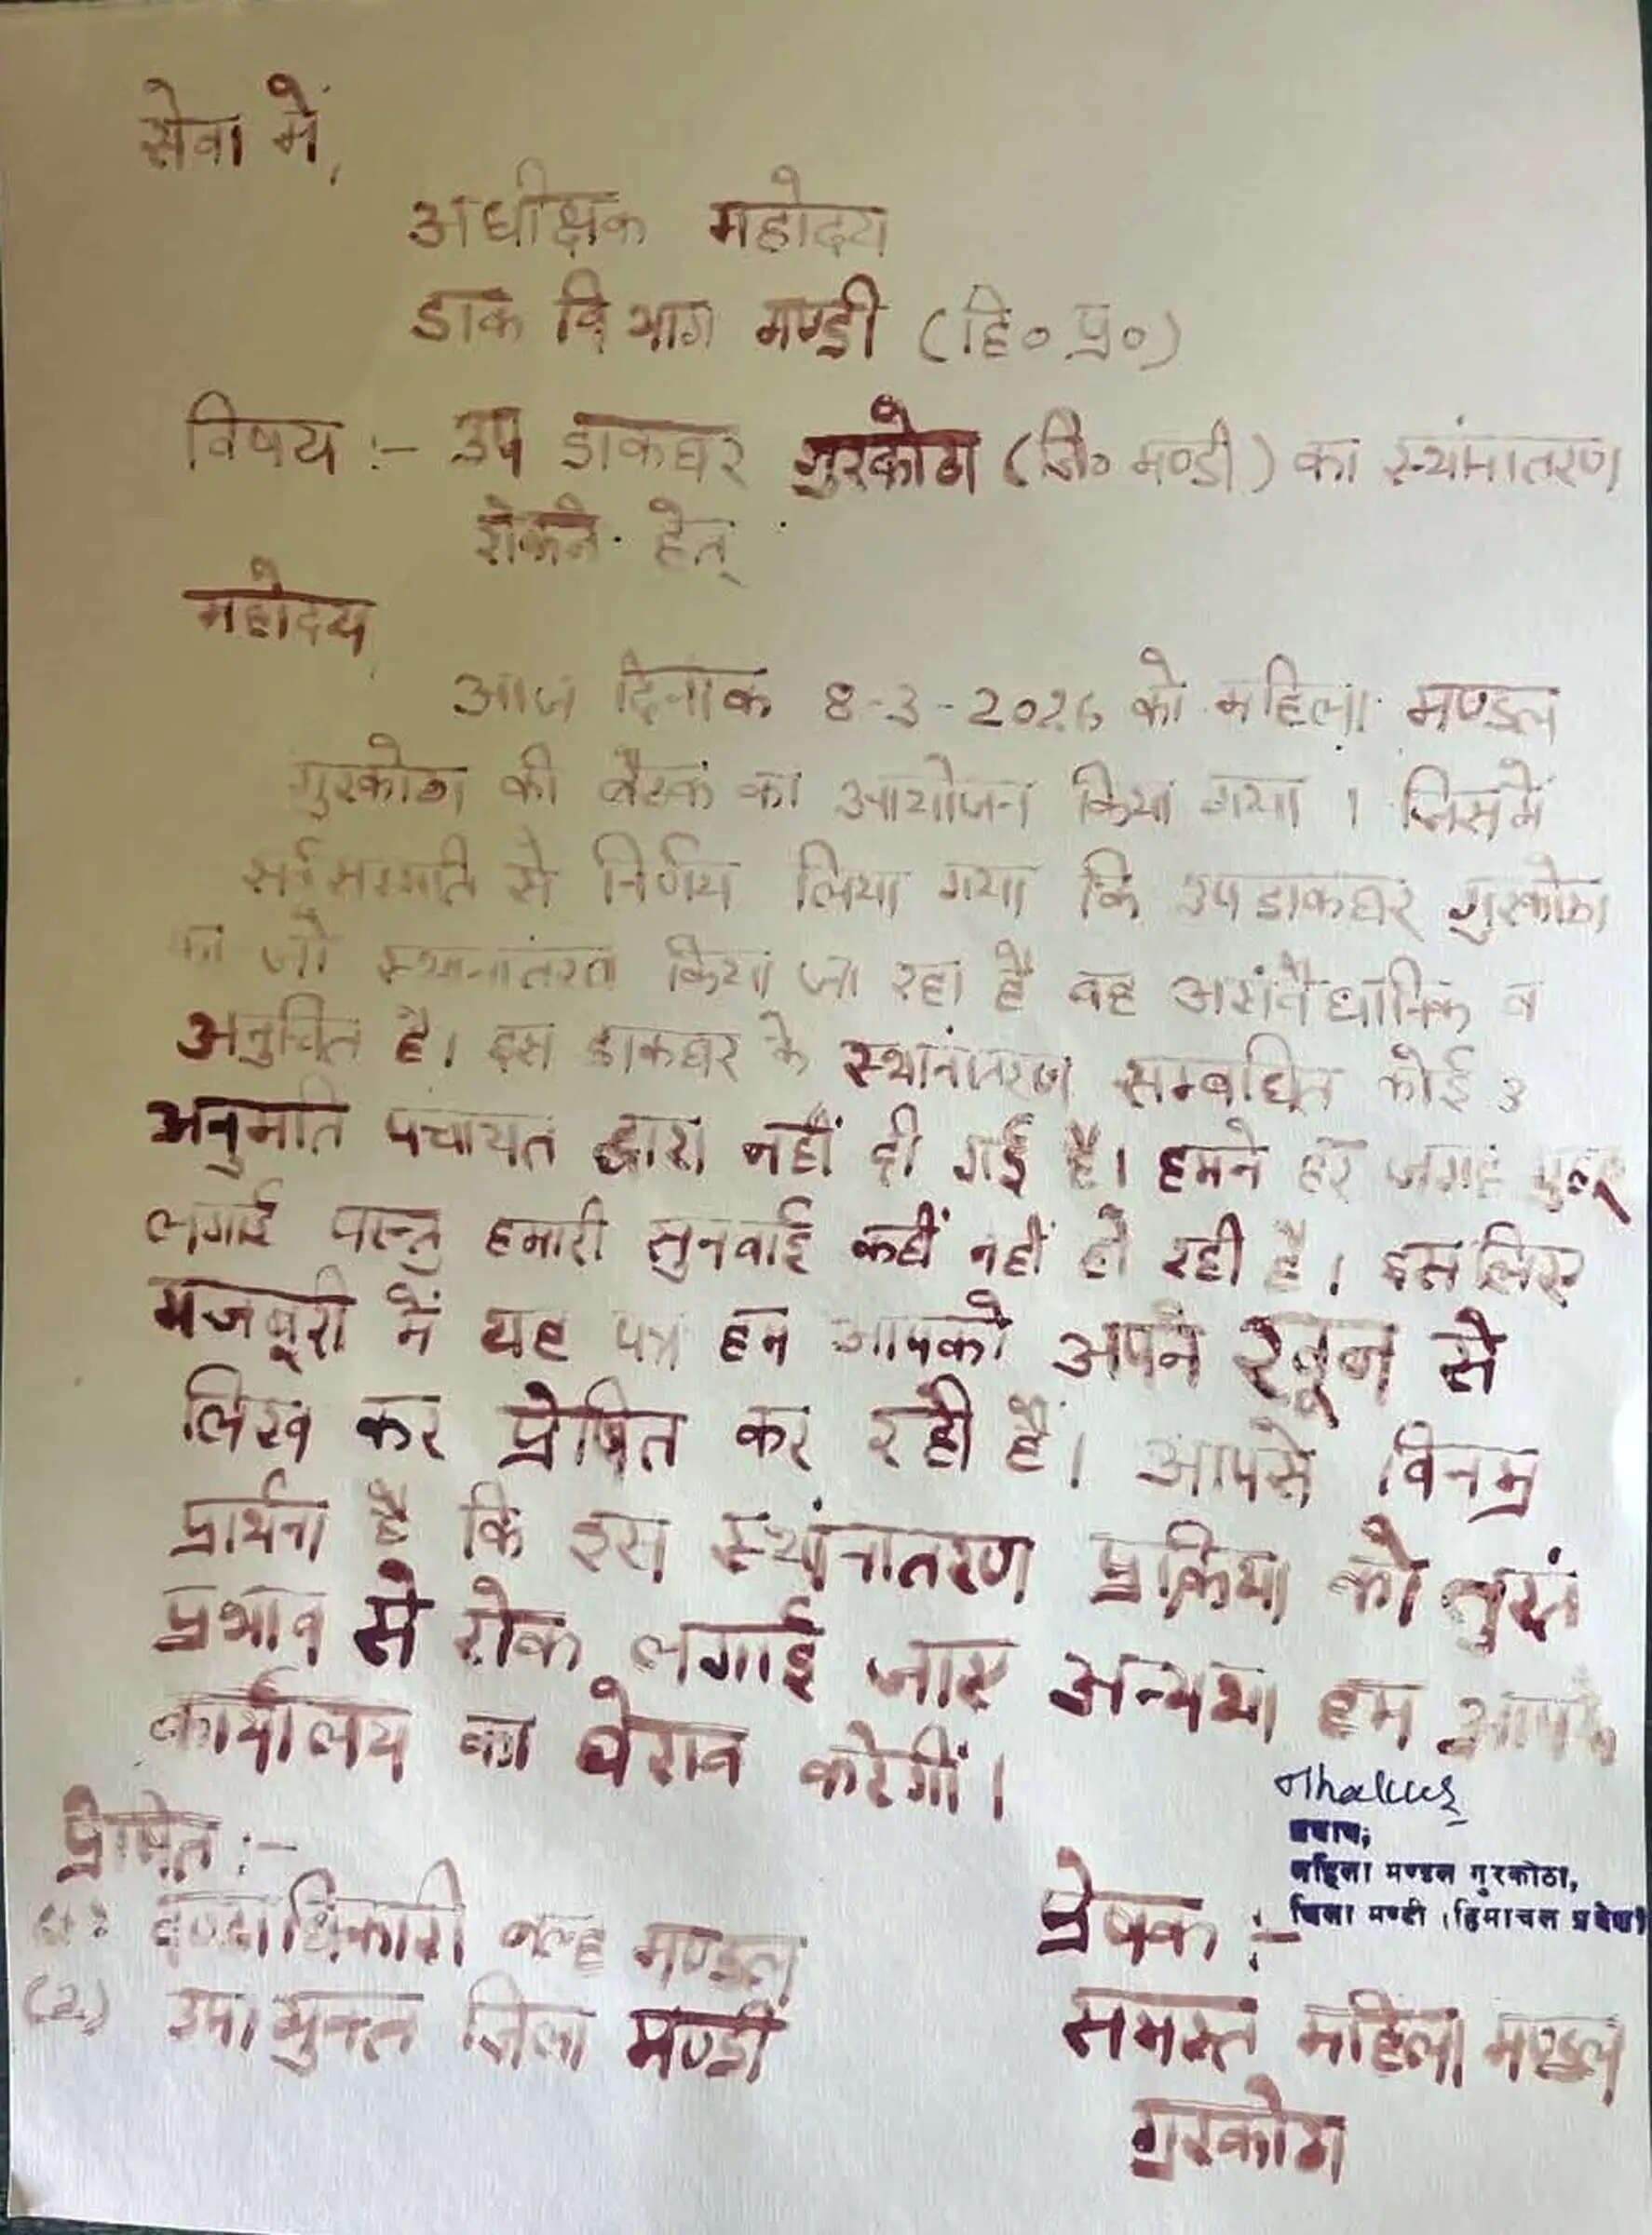 सेवा में,
अधीक्षक महोदय
डाक विभाग मण्डी (हि० प्र०)
विषय :- उप डाकघर गुरकोठा (जि० मण्डी) का स्थांनातरण
रोकने हेतु
महोदय,
आज दिनांक 8-3-2026 को महिला मण्डल
गुरकोठा की बैठक का आयोजन किया गया । जिसमें
सर्वसम्मति से निर्णय लिया गया कि उपडाकघर गुरकोठा
का जो स्थानातंरण किया जा रहा है वह असंवैधानिक व
अनुचित है। इस डाकघर के स्थानांतरण सम्बधित कोई
अनुमति पंचायत द्वारा नहीं दी गई है। हमने हर जगह गुहार
लगाई परन्तु हमारी सुनवाई कहीं नहीं हो रही है । इसलिए
मजबूरी में यह पत्र हम आपको अपने खून से
लिख कर प्रेषित कर रही हैं। आपसे विनम्र
प्रार्थना है कि इस स्थांनातरण प्रक्रिया को तुरतं
प्रभाव से रोक लगाई जाए अन्यथा हम आपके
कार्यालय का घेराव करेगीं।
Thakur
प्रधान,
महिला मण्डल गुरकोठा,
जिला मण्डी (हिमाचल प्रदेश)
प्रेषित :-
दण्डाधिकारी बल्ह मण्डल
(2) उपायुक्त जिला मण्डी
प्रेषक :-
समस्त महिला मण्डल
गुरकोठा